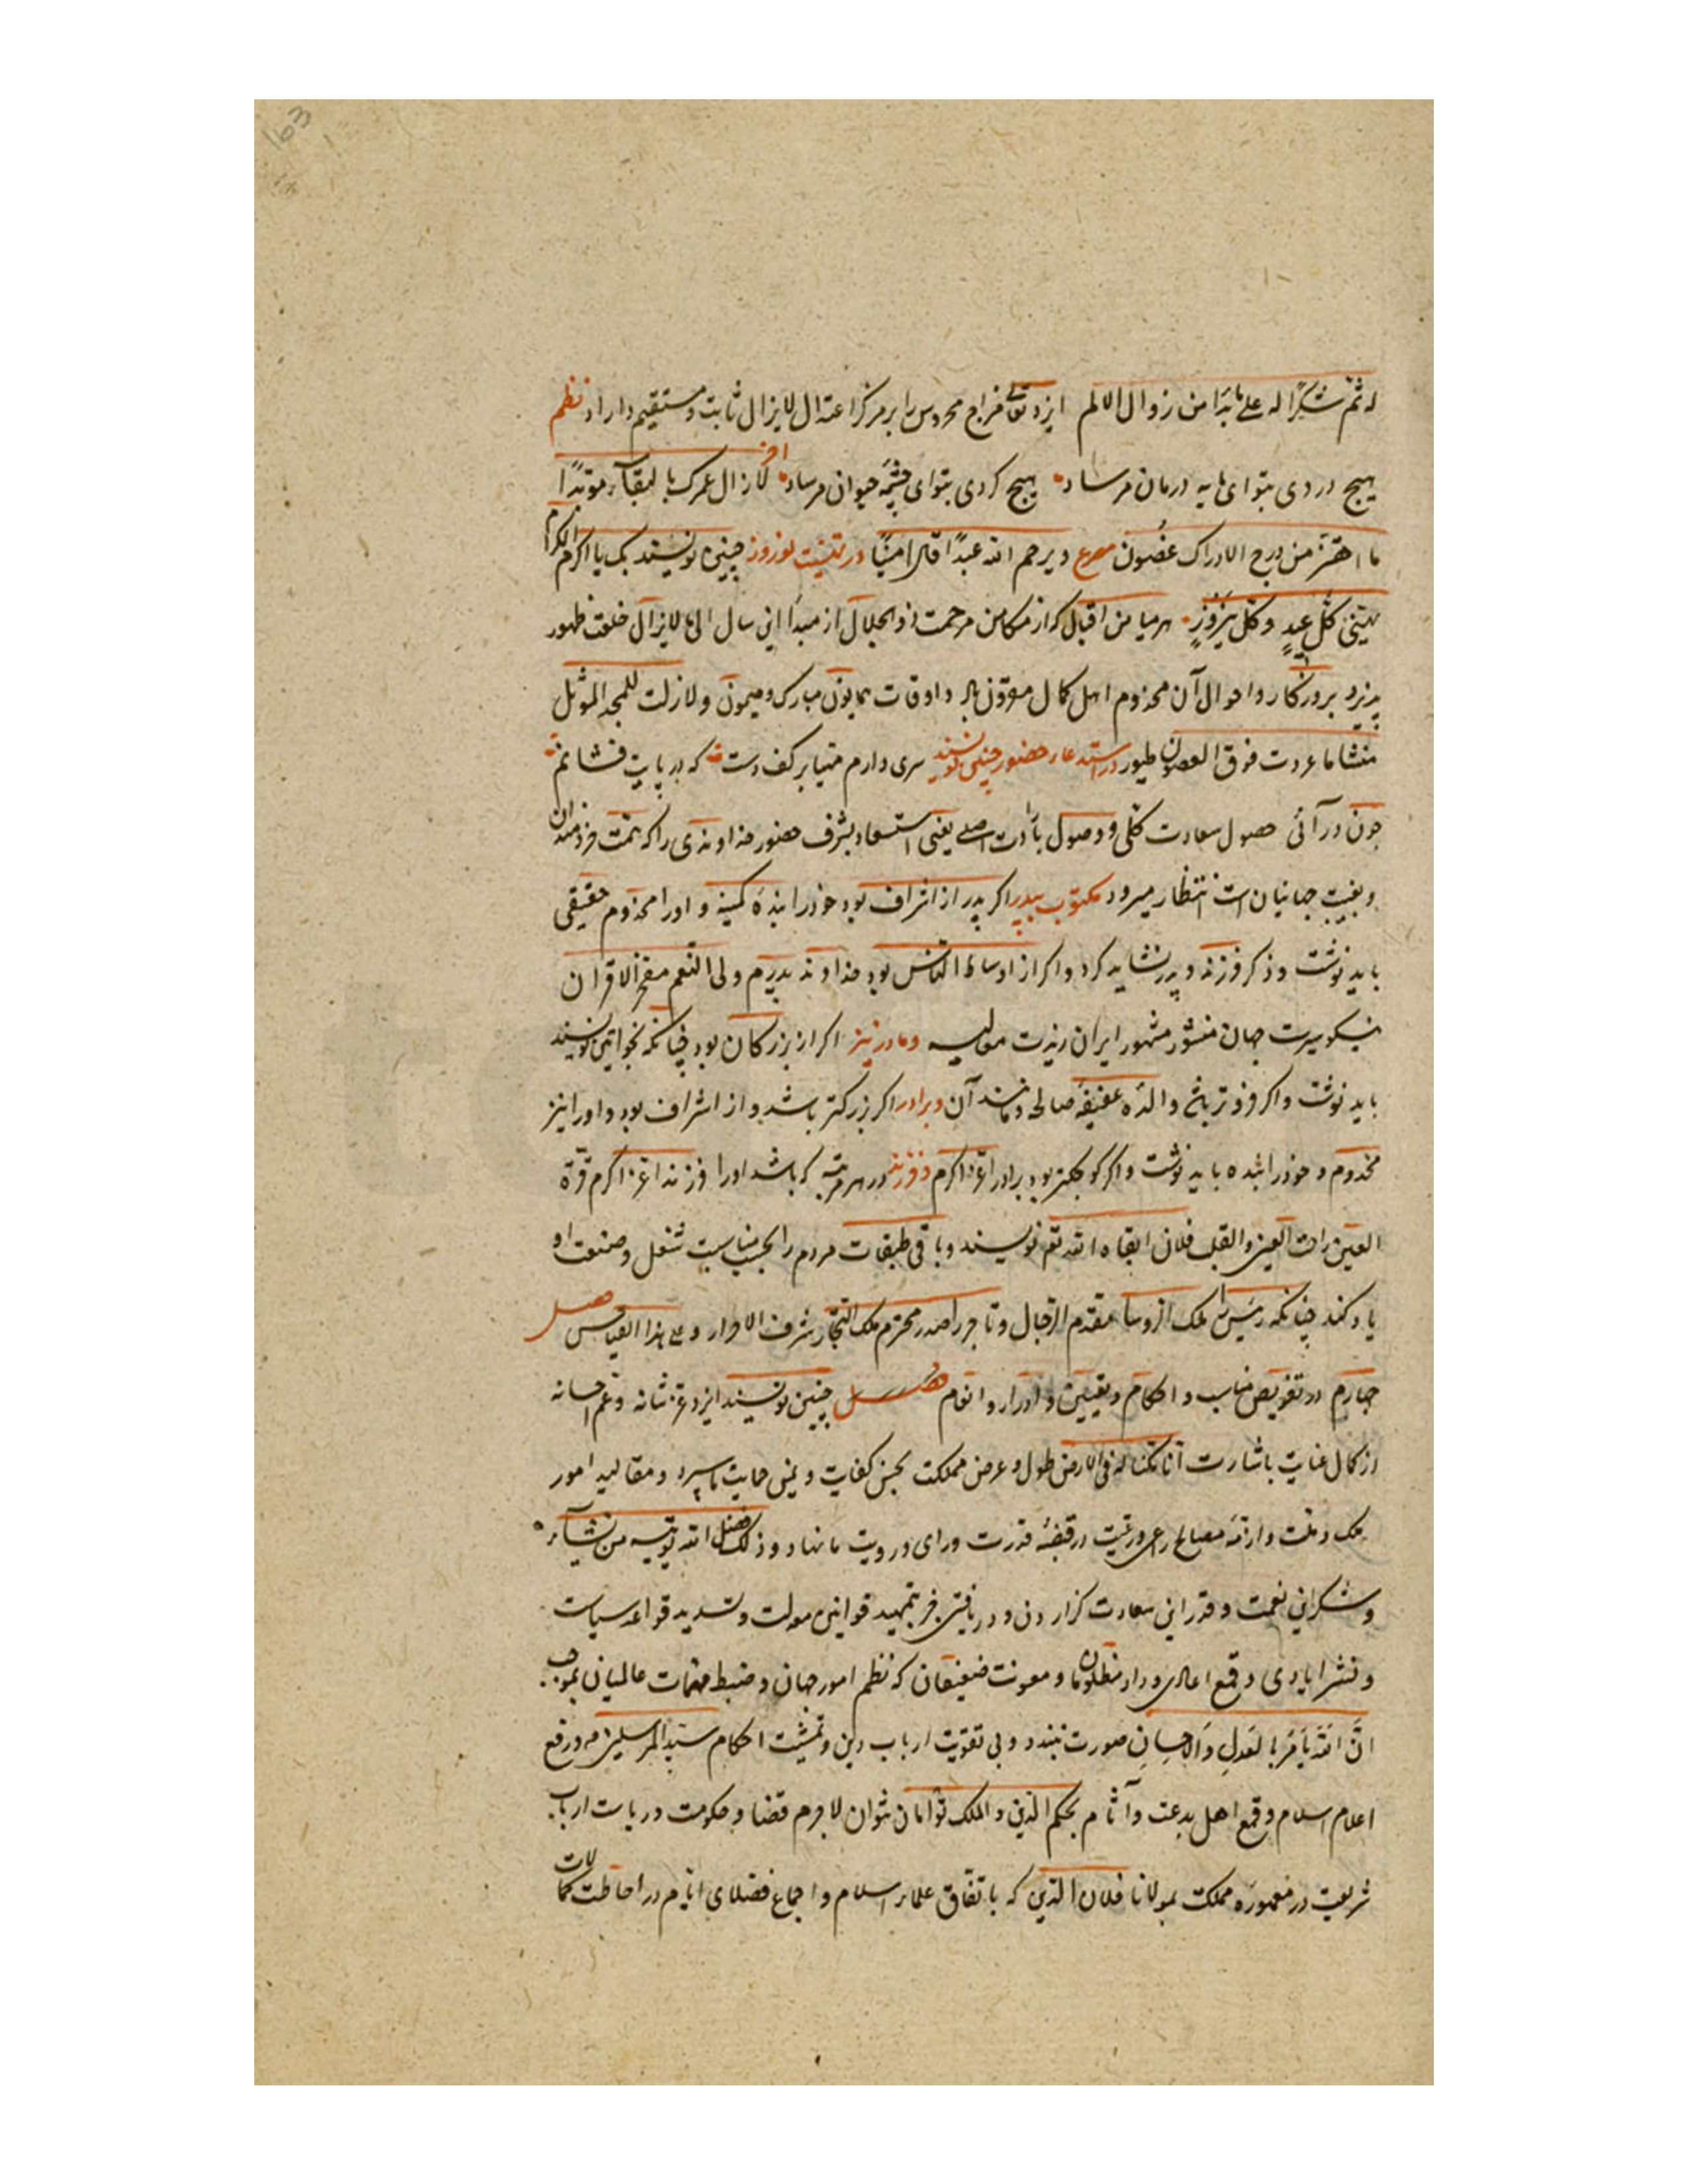 163
له ثم شکرًا له علی ما بدا من زوال الالم ایزد تعالی مزاج محروس را بر مرکز اعتدال لایزال ثابت و مستقیم داراد نظم
هیچ دردی بتو ای مایه درمان مرساد هیچ کردی بتو ای چشمهٔ حیوان مرساد اخر لازال عمرک بالبقاء موتدًا
ما اهتز من الادراک غصون مصرع و یرحم الله عبدًا قال امینًا در تهنیت نوروز چنین نویسند بک یا اکرم الکرام
تهنی کل عید و کل نیروز هر میامن اقبال که از مکامن مرحمت ذو الجلال از مبدا این سال الی لایزال خلعت ظهور
پذیرد بروزکار و احوال آن مخدوم اهل کمال مقرون باد و اوقات همایون مبارک و میمون و لازلت للمجد الموثل
منشا ما غردت فوق الغصون طیور در استدعاء حضور چنین نویسند سری دارم مهیا بر کف دست که در پایت فشانم
چون در آئی حصول سعادت کلی و وصول بارادت اصلی یعنی استسعاد بشرف حضور خداوندی را که نهمت خردمندان
و بغیت جهانیان است انتظار میرود مکتوب بپدر اکر پدر از اشراف بود خود را بندهٔ کمینه و او را مخدوم حقیقی
باید نوشت و ذکر فرزند و پدر نشاید کرد و اکر از اوساط الناس بود خداوند پدرم ولی النعم مفخر الاقران
نیکو سیرت جهان منشور مشهور ایران زیدت معالیه و مادر نیز اکر از بزرکان بود چنانکه بخواتین نویسند
باید نوشت و اکر فروتر باشد والدهٔ عفیفهٔ صالحه و مانند آن و برادر اکر بزرکتر باشد و از اشراف بود او را نیز
مخدوم و خود را بنده باید نوشت و اکر کوچکتر بود برادر اعز اکرم و فرزند در هر مرتبه که باشد او را فرزند اعز اکرم قرة
العین راحت العین و القلب فلان ابقاه الله تعم نویسند و باقی طبقات مردم را بحسب مناسبت شغل و صنعت او
یاد کنند چنانکه رئیس را ملک الروسا مقدم الرجال و تاجر را صدر محترم ملک التجار شرف الاحرار و علی هذا القیاس اصل
چهارم در تفویض مناسب و احکام و تعیین و ادرار و انعام فصل چنین نویسند ایزد عز شانه و عم احسانه
از کمال عنایت باشارت انا مکنا له فی الارض طول و عرض مملکت بحسن کفایت و یمن حمایت ما سپرد و مقالید امور
ملک و ملت و ازمهٔ مصالح رعی و رعیت در قبضهٔ قدرت و رای و رویت ما نهاد و ذلک فضل الله یوتیه من یشآء
و شکر این نعمت و قدر این سعادت کزاردن و دریافتن جز بتمهید قوانین معدلت و تشدید قواعد سیاست
و نشر ایادی و قمع اعادی و داد مظلومان و معونت ضعیفان که نظم امور جهان و ضبط مهمات عالمیان بموجب
ان الله یامر بالعدل و الاحسان صورت نبندد و بی تقویت ارباب دین و تمشیت احکام سید المرسلین و رفع
اعلام اسلام و قمع اهل بدعت و آثام بحکم الدین و الملک توامان نتوان لاجرم قضا و حکومت در بابت ارباب
شریعت در معمورهٔ مملکت بمولانا فلان الدین که باتفاق علماء اسلام و اجماع فضلای ایام در احاطت کمالات